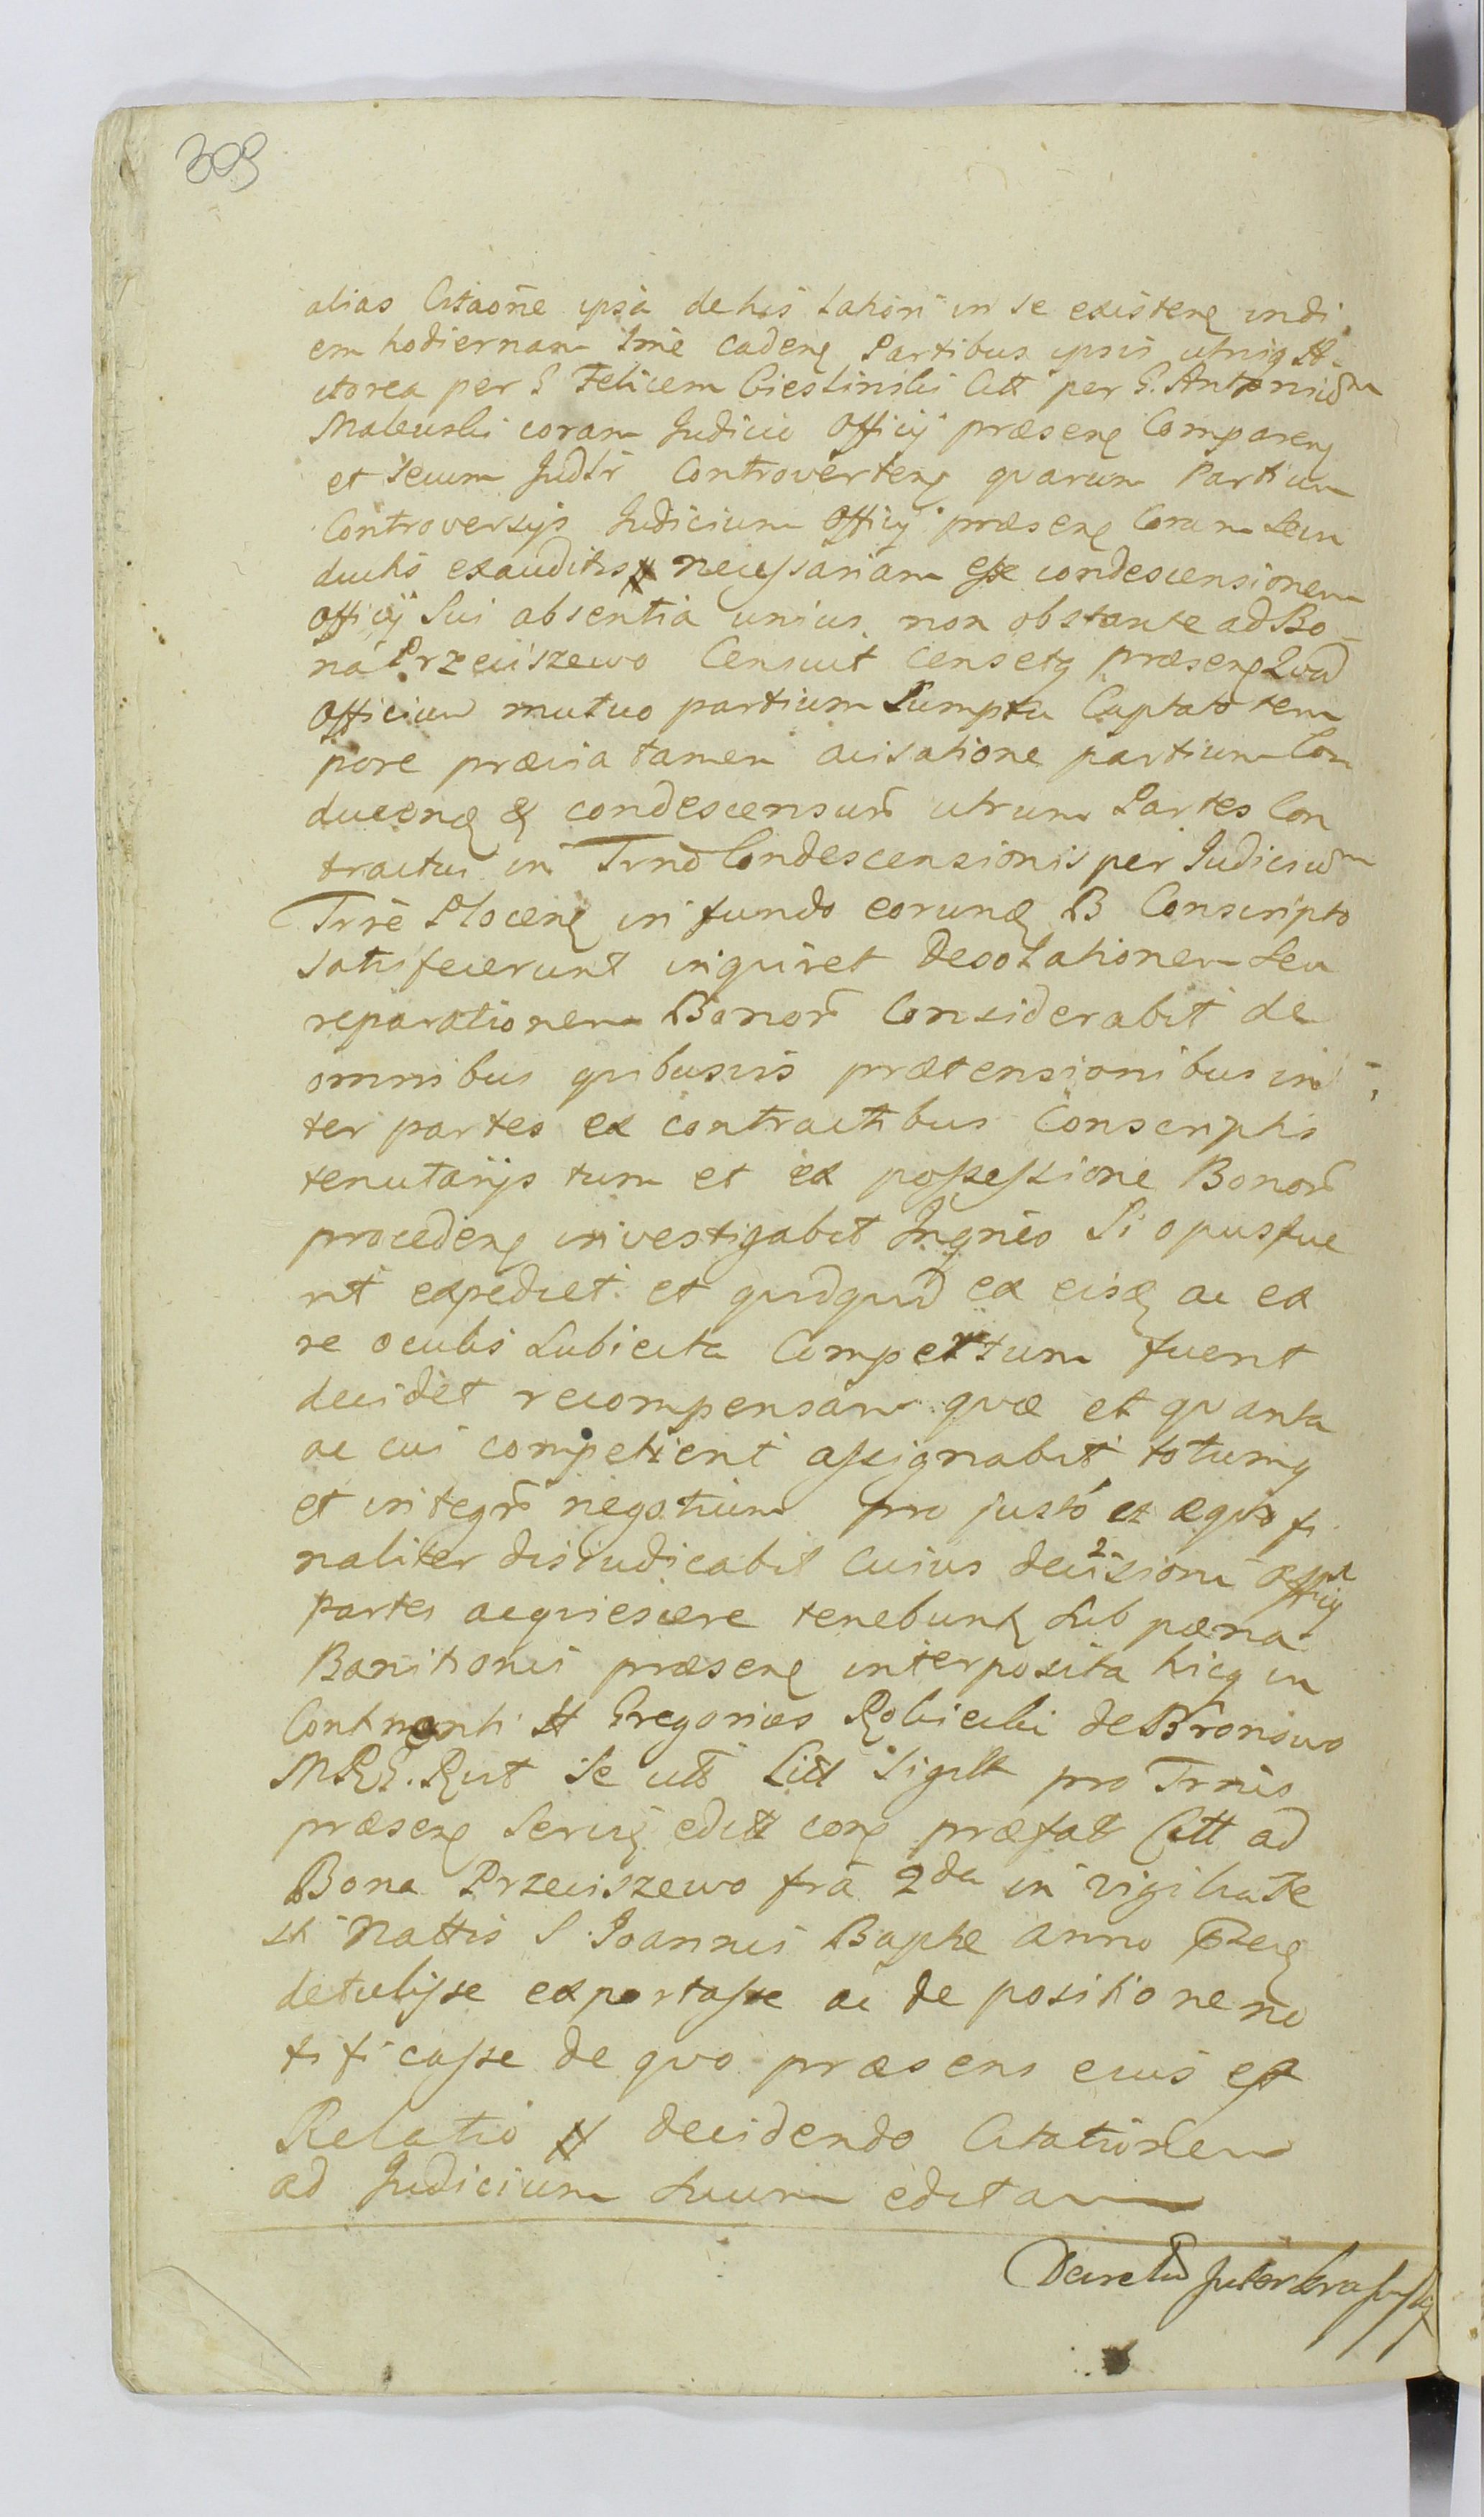 309
alias Citaõne ipsa de his latiori in se existenę indi
em hodiernam Trne cadenę Partibus ipsis utrisq A
ctorea per G Felicem Ciesliński Citt per G. Antonium
Malewski coram Judicio Officij præsenę Comparenę
et secum Judlr Controvertenę quarum Partium
Controversijs Judicium Officij præsenę Coram sein
ductis exauditis # necessariam esse condescensionem
Officij Sui absentia unius non obstante ad Bo
na Przeciszewo Censuit censetq præsenę Quod
Officium mutuo partium Sumptu Captato tem
pore prævia tamen avisatione partium Con
ducenđ & condescensur utrum Partes Con
tractui in Trno Condescensionis per Judicium
Trre Plocenę in fundo eorunđ B Conscripto
satisfecerunt inquiret Desolationem seu
reparationem Bonor Considerabit de
omnibus quibusvis prætensionibus in
ter partes ex contractibus Conscriptis
tenutarijs tum et ex possessione Bonor
procedenę investigabit Inqnes Si opus fue
rit expediet et quidquid ex eisđ ac ex
re oculis Subiecta Compertum fuerit
decidet recompensam quæ et quanta
ac cui competierit assignabit totumq
et integr negotium pro justo et æquo fi
naliter disiudicabit cuius decisioni Officij
partes acquiescere tenebuntę Sub pæna
Banitionis præsenę interposita hicq in
Continenti # Gregorius Robiecki de Bronowo
MRG. Rcit Se utt Litt Sigill pro Trnis
præsenę Servię edit conę præfat Citt ad
Bona Przeciszewo fra 2da in vigilia Fe
sti Nattis S Joannis Baptæ anno Præę
detulisse exportasse ac de positione no
tificasse de quo præsens eius est
Relatio # decidendo Citationem
ad Judicium Suum editam
Decretum Inter